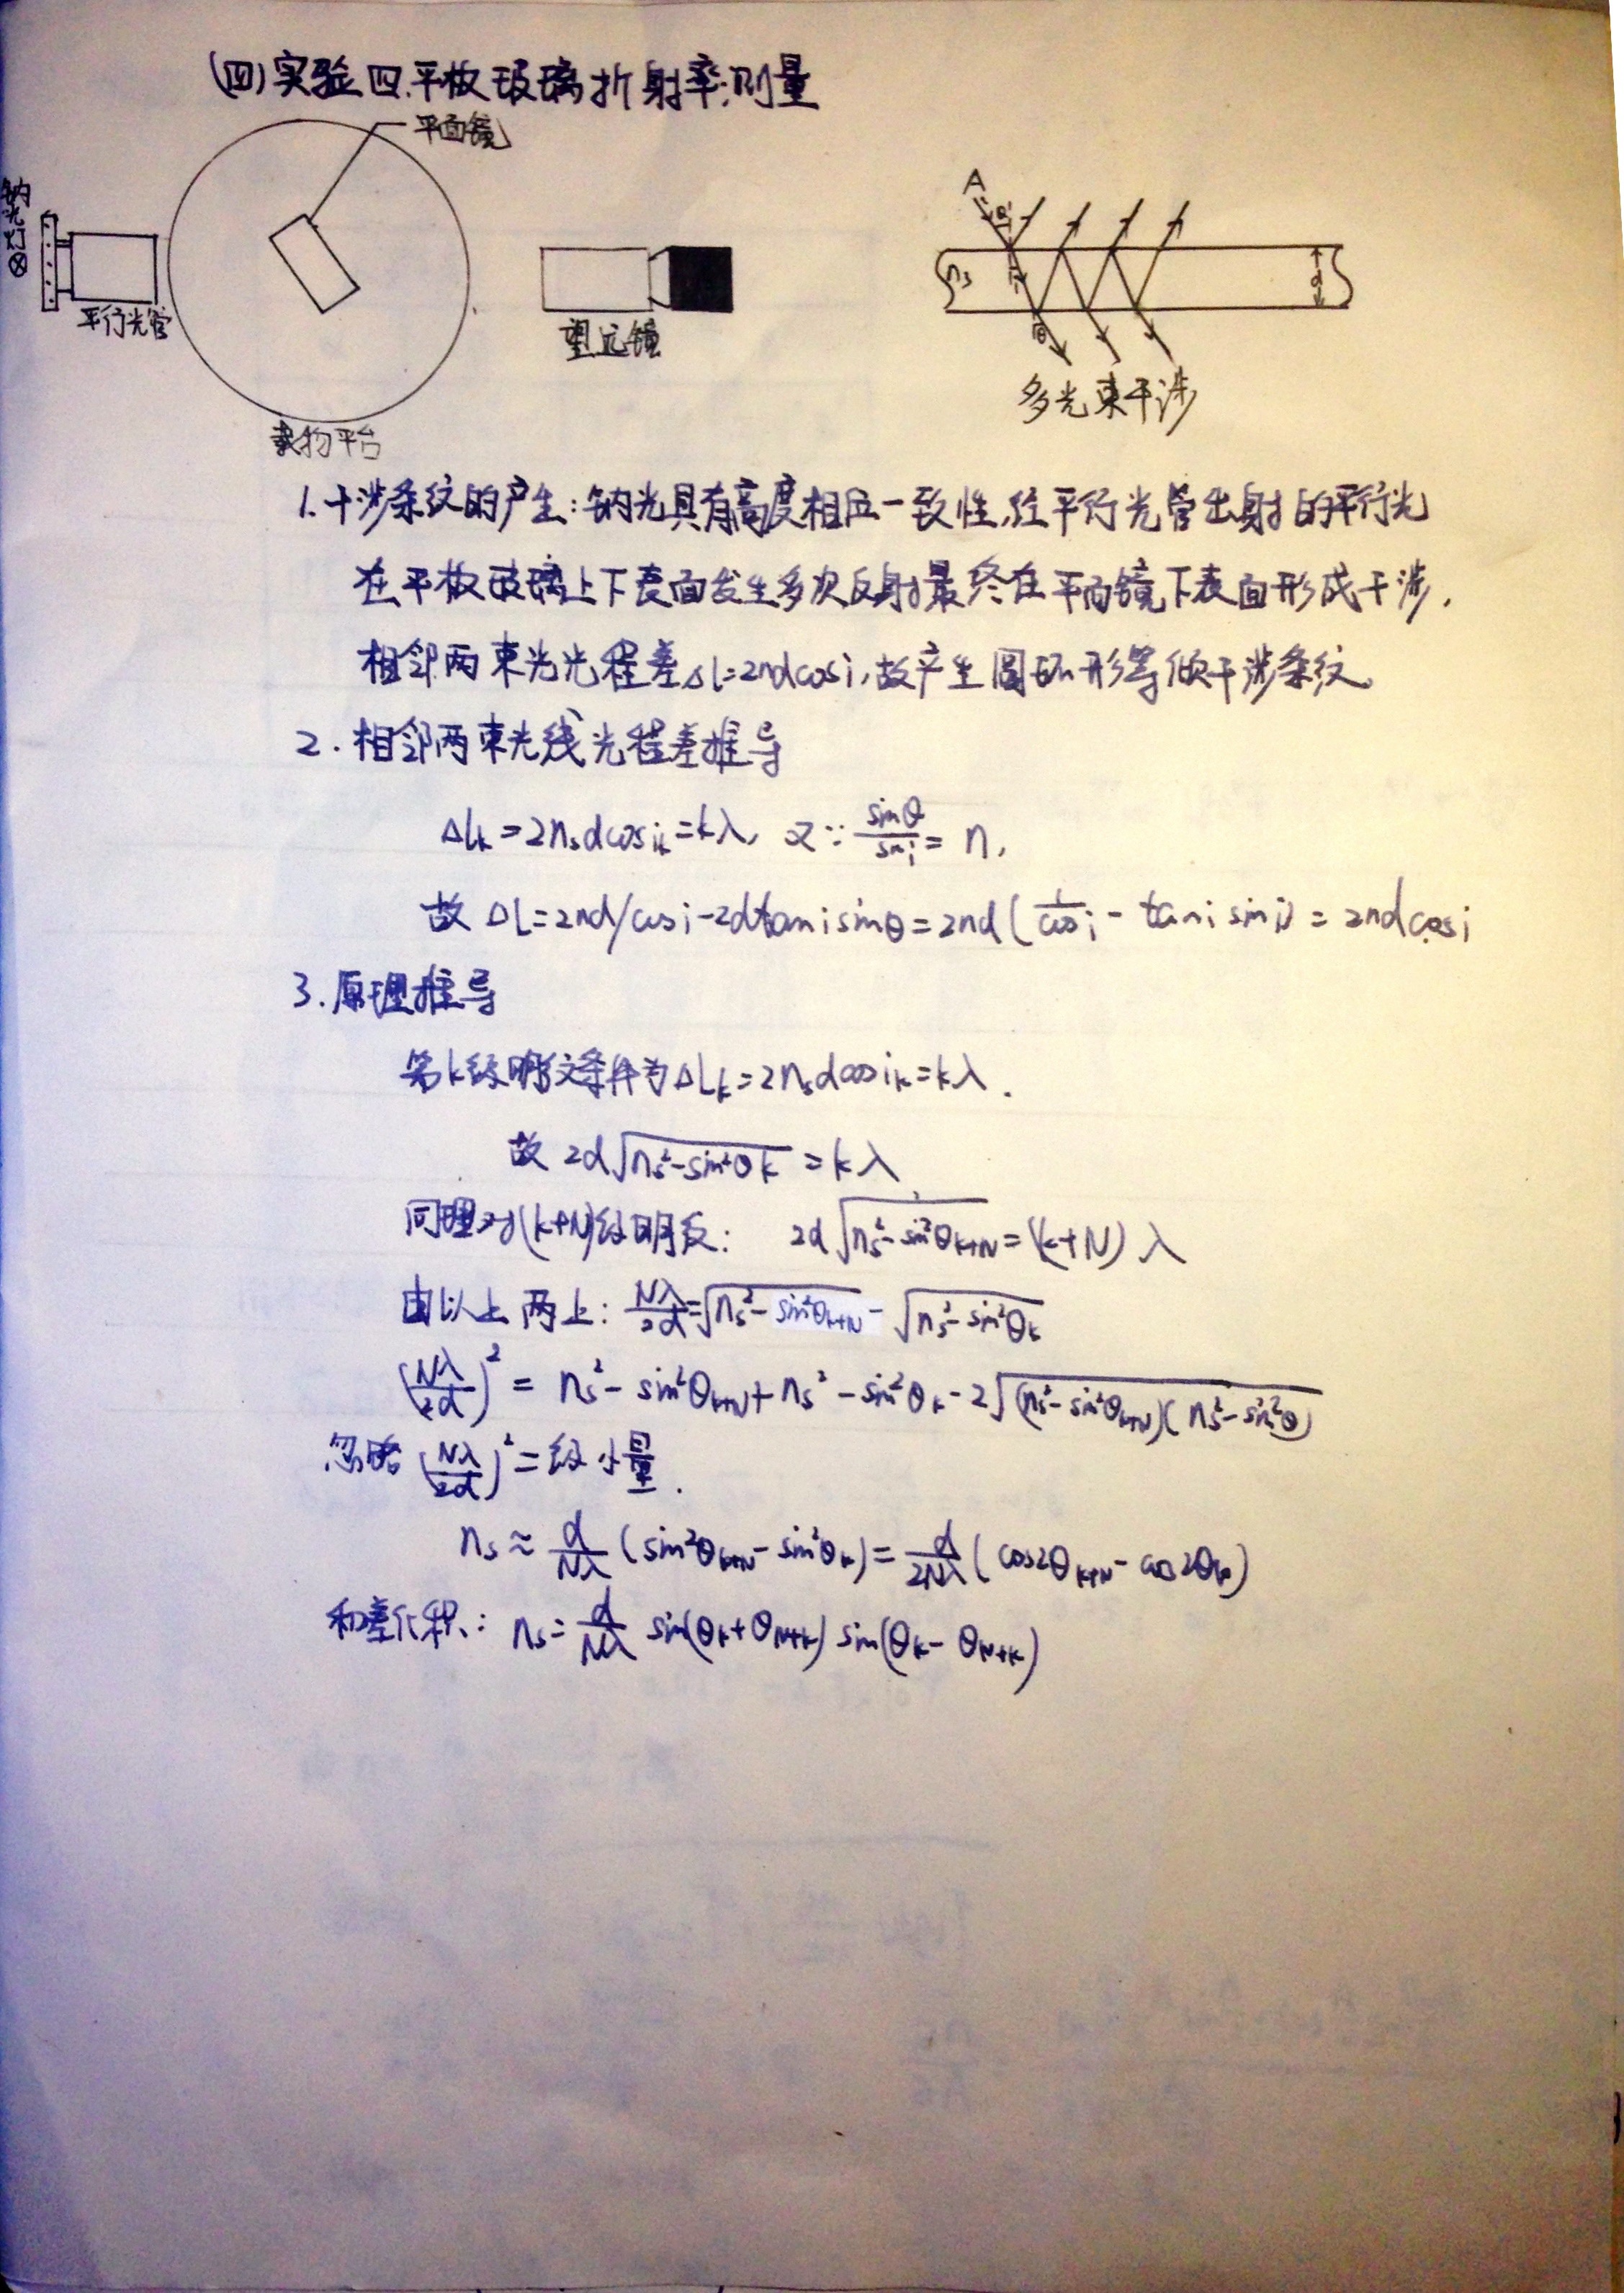 (四)实验四.平板玻璃折射率测量
平面镜
钠光灯
平行光管
望远镜
载物平台
A
θ
i
n_s
d
θ
多光束干涉
1.干涉条纹的产生:钠光具有高度相位一致性,经平行光管出射的平行光
在平板玻璃上下表面发生多次反射,最终在平面镜下表面形成干涉.
相邻两束光光程差ΔL=2ndcosi,故产生圆环形等倾干涉条纹.
2.相邻两束光线光程差推导
ΔL_k=2n_s d cos i_k=kλ, 又∵ sinθ/sin i = n,
故 ΔL=2nd/cos i-2dtan i sinθ=2nd(1/cos i - tan i sin i)=2nd cos i
3.原理推导
第k级明纹条件为ΔL_k=2n_s d cos i_k=kλ.
故 2d√(n_s²-sin²θ_k)=kλ
同理对(k+N)级明纹: 2d√(n_s²-sin²θ_{k+N})=(k+N)λ
由以上两上: Nλ/2d=√(n_s²-sin²θ_{k+N})-√(n_s²-sin²θ_k)
(Nλ/2d)²=n_s²-sin²θ_{k+N}+n_s²-sin²θ_k-2√((n_s²-sin²θ_{k+N})(n_s²-sin²θ))
忽略(Nλ/2d)²=级小量.
n_s≈d/Nλ(sin²θ_{k+N}-sin²θ_k)=d/2Nλ(cos2θ_{k+N}-cos2θ_k)
和差化积: n_s=d/Nλ sin(θ_k+θ_{N+k})sin(θ_k-θ_{N+k})